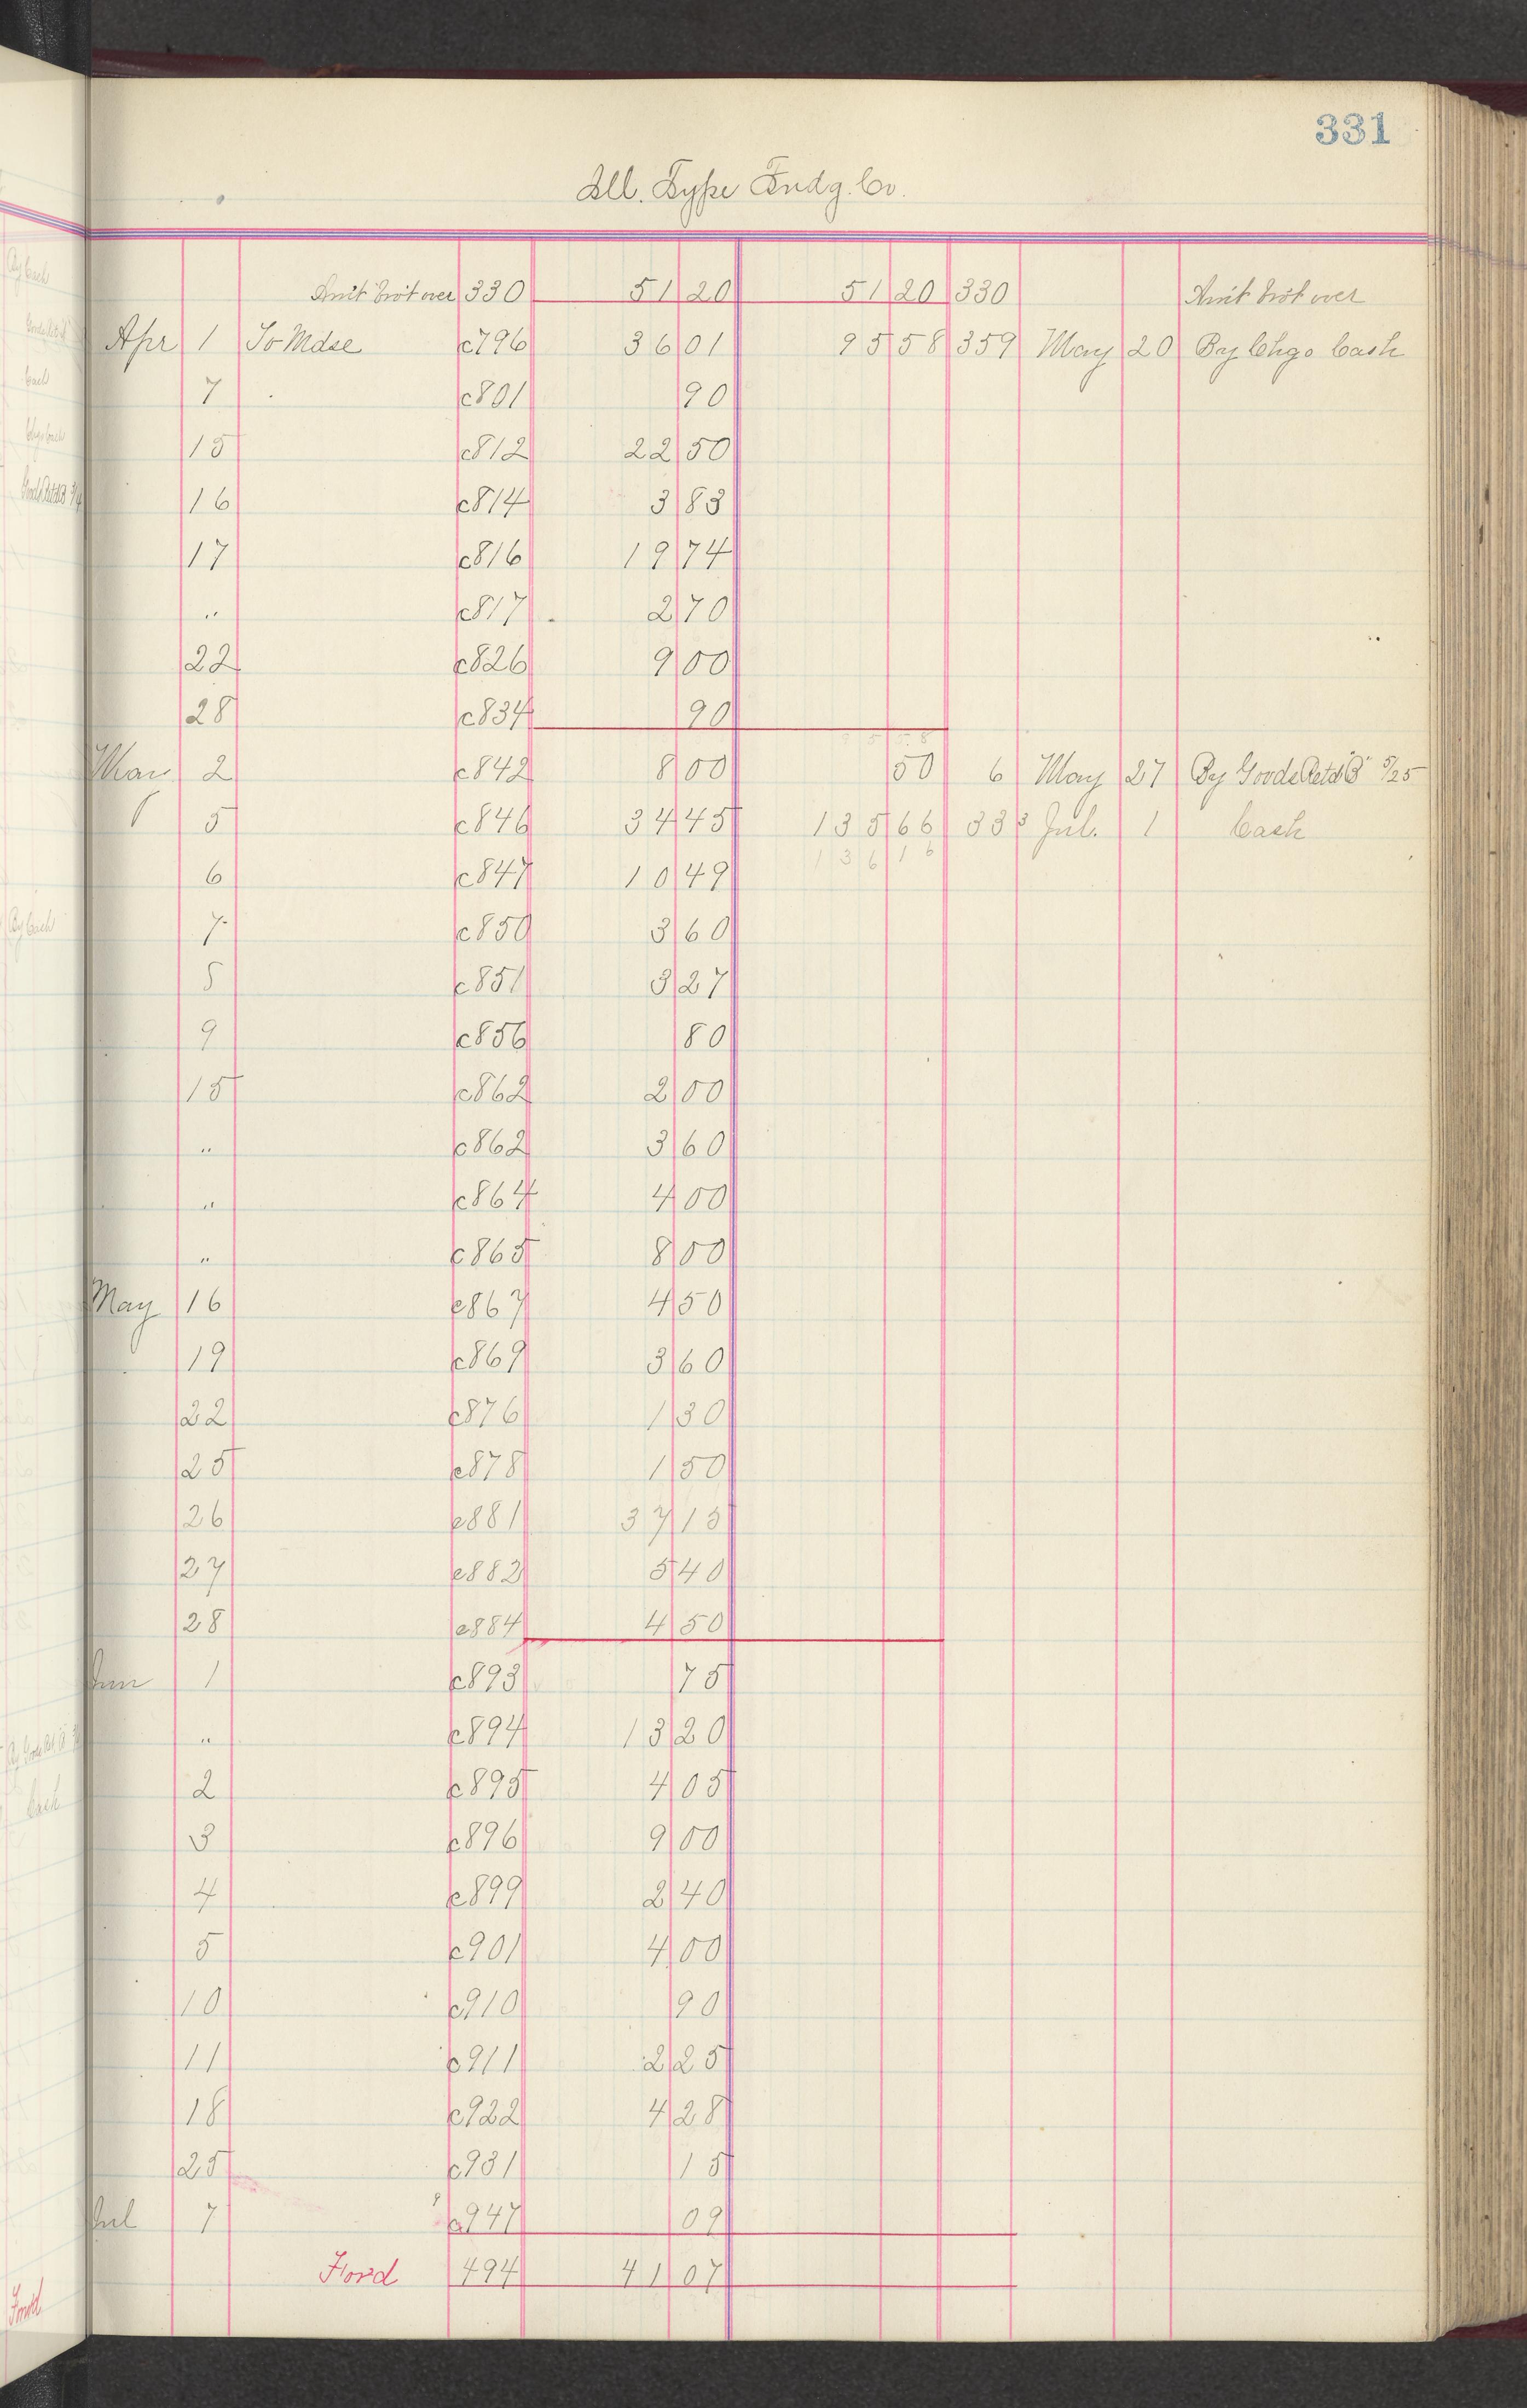 331
Ill. Type Fndg. Co.
Am't bro't over 330 51 20 51 20 330 Am't bro't over
Apr 1 To Mdse c796 36 01 95 58 359 May 20 By Chgo Cash
7 c801 90
15 c812 22 50
16 c814 3 83
17 c816 19 74
" c817 2 70
22 c826 9 00
28 c834 90
May 2 c842 8 00 50 6 May 27 By Goods Retd "B" 5/25
5 c846 34 45 135 66 333 Jul. 1 Cash
136 16
6 c847 10 49
7 c850 3 60
8 c851 3 27
9 c856 80
15 c862 2 00
" c862 3 60
" c864 4 00
" c865 8 00
May 16 c867 4 50
19 c869 3 60
22 c876 1 30
25 c878 1 50
26 c881 37 15
27 c882 5 40
28 c884 4 50
Jun 1 c893 75
" c894 13 20
2 c895 4 05
3 c896 9 00
4 c899 2 40
5 c901 4 00
10 c910 90
11 c911 2 25
18 c922 4 28
25 c931 15
Jul 7 c947 09
For'd 494 41 07